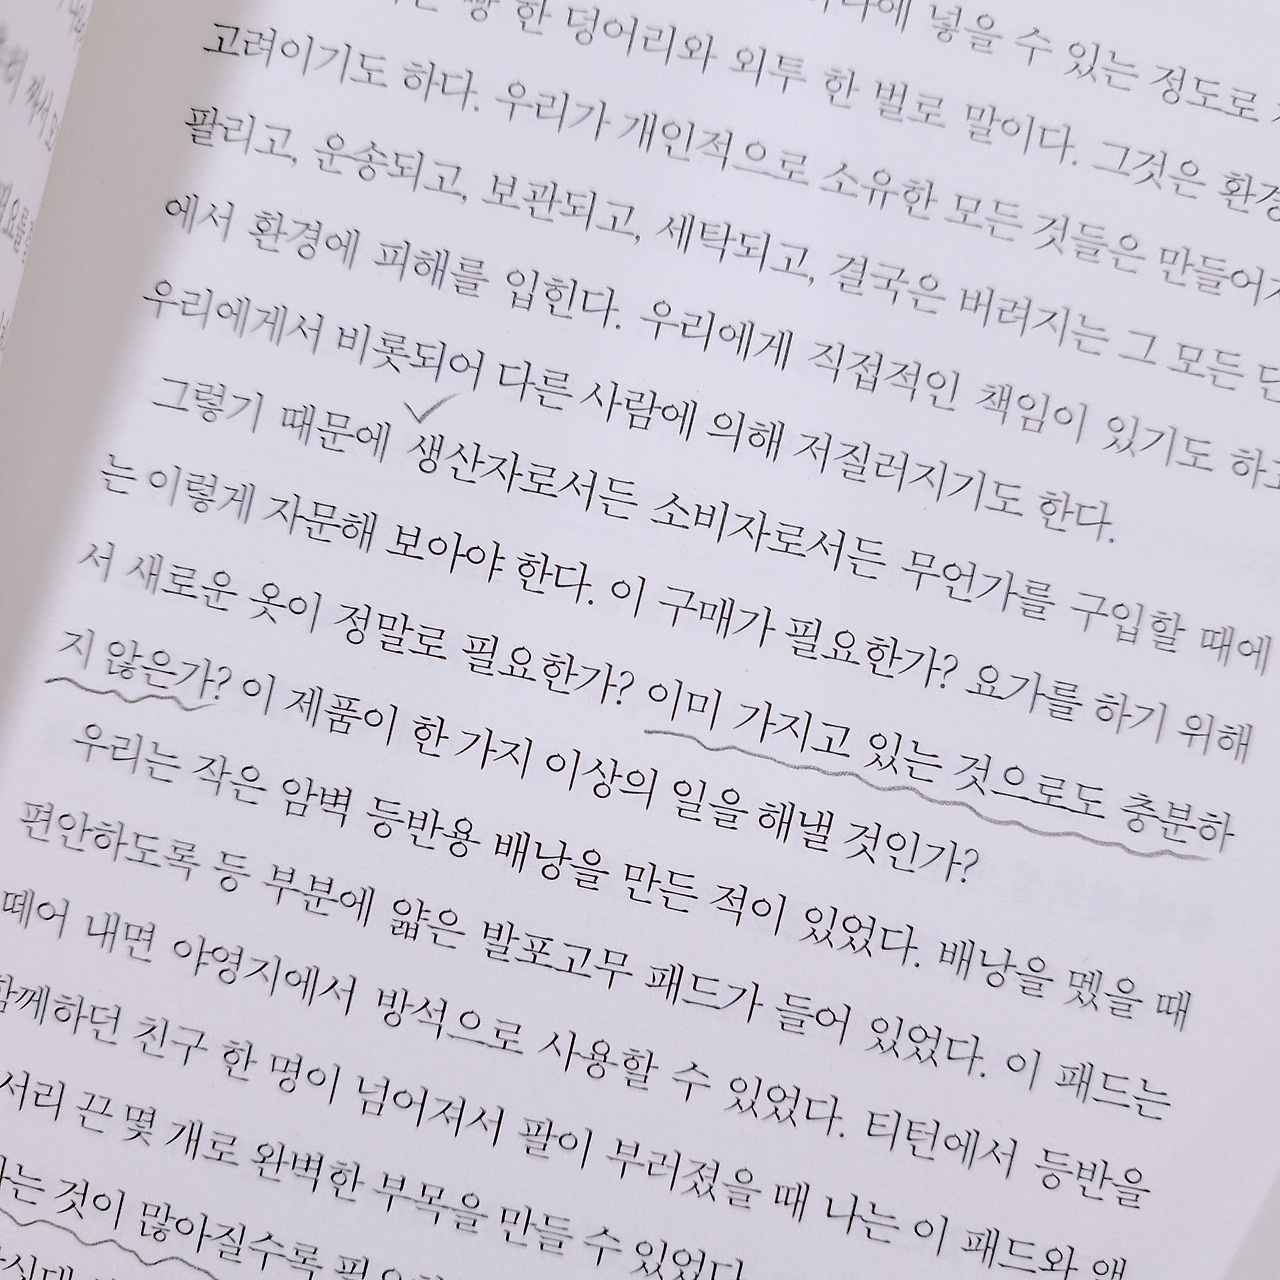 빵 한 덩어리와 외투 한 벌로 말이다. 그것은
넣을 수 있는 정도로
고려이기도 하다. 우리가 개인적으로 소유한 모든 것들은 만들어
팔리고, 운송되고, 보관되고, 세탁되고, 결국은 버려지는 그 모든
에서 환경에 피해를 입힌다. 우리에게 직접적인 책임이 있기도
우리에게서 비롯되어 다른 사람에 의해 저질러지기도 한다.
그렇기 때문에 생산자로서든 소비자로서든 무언가를 구입할 때에
는 이렇게 자문해 보아야 한다. 이 구매가 필요한가? 요가를 하기 위해
서 새로운 옷이 정말로 필요한가? 이미 가지고 있는 것으로도 충분하
지 않은가? 이 제품이 한 가지 이상의 일을 해낼 것인가?
우리는 작은 암벽 등반용 배낭을 만든 적이 있었다. 배낭을 멨을 때
편안하도록 등 부분에 얇은 발포고무 패드가 들어 있었다. 이 패드는
떼어 내면 야영지에서 방석으로 사용할 수 있었다. 티턴에서 등반을
함께하던 친구 한 명이 넘어져서 팔이 부러졌을 때 나는 이 패드와
서리 끈 몇 개로 완벽한 부목을 만들 수 있었다.
는 것이 많아질수록